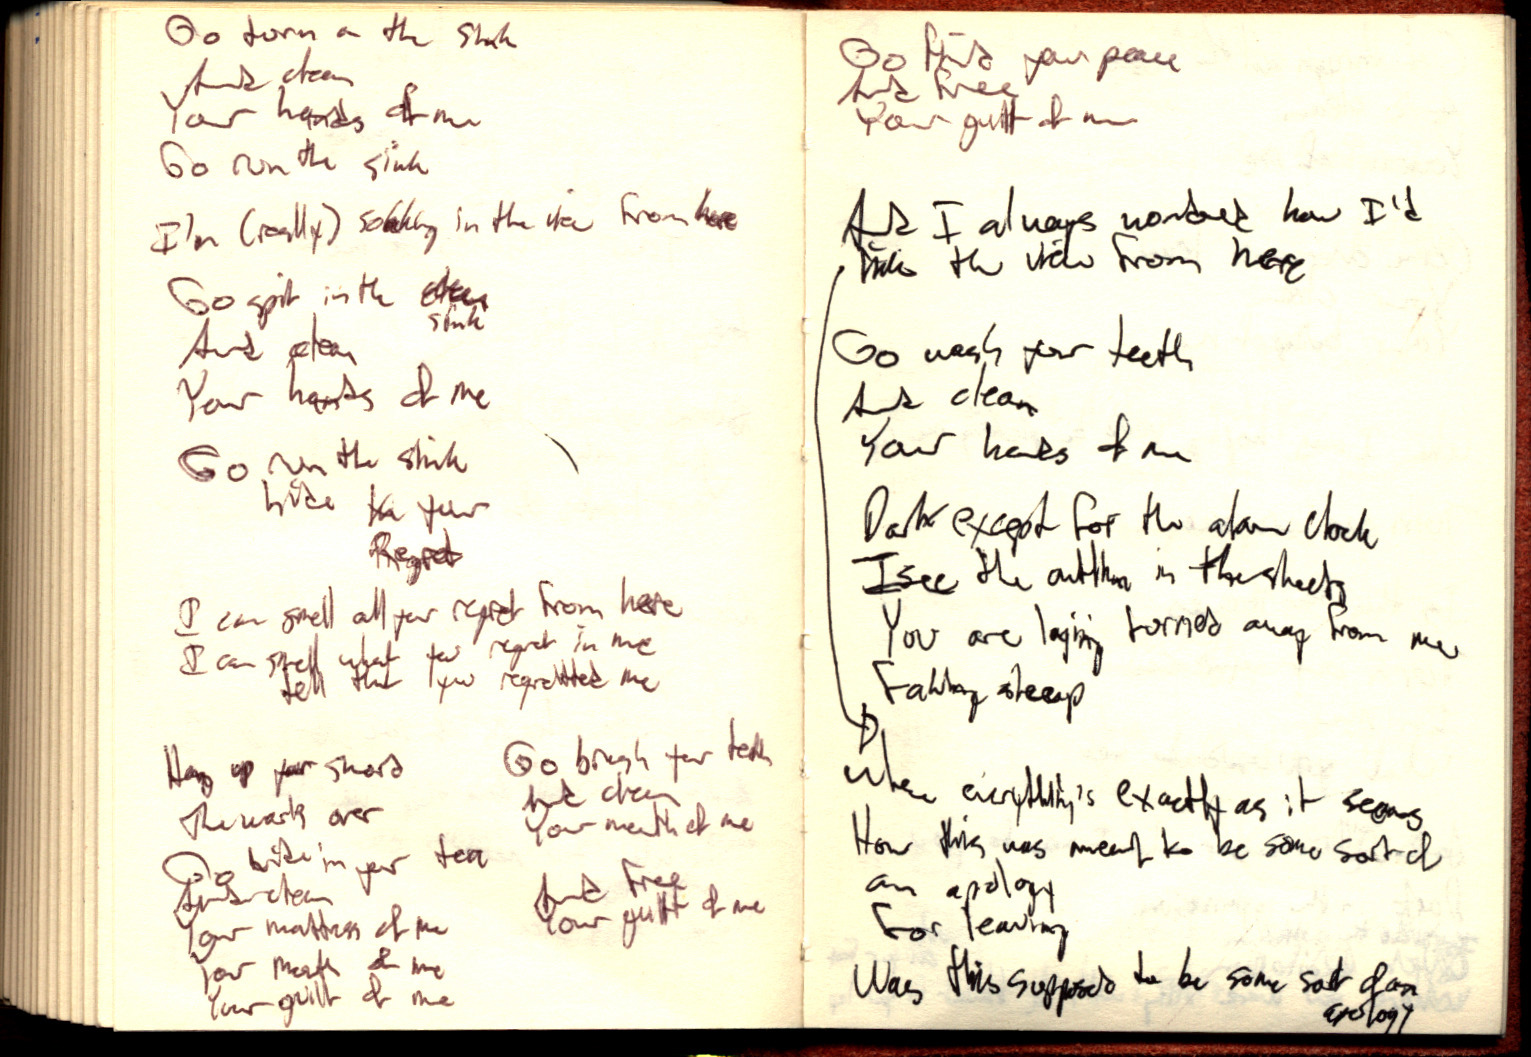 Go turn on the sink
And clean
Your hands of me
Go run the sink
I'm (really) soaking in the view from here
Go spit in the clean
sink
And clean
Your hands of me
Go run the sink
hide
your
Regret
I can smell all your regret from here
I can smell what you regret in me
tell that you regretted me
Hang up your sword
The war's over
Go hide in your tea
And clean
Your mattress of me
Your mouth of me
Your guilt of me
Go brush your teeth
And clean
Your mouth of me
And free
Your guilt of me
Go find your peace
And free
Your guilt of me
And I always wondered how I'd
like the view from here
Go wash your teeth
And clean
Your hands of me
Dark except for the alarm clock
I see the outline in the sheets
You are laying turned away from me
Falling asleep
Where everything's exactly as it seems
How this was meant to be some sort of
an apology
For leaving
Was this supposed to be some sort of an
apology